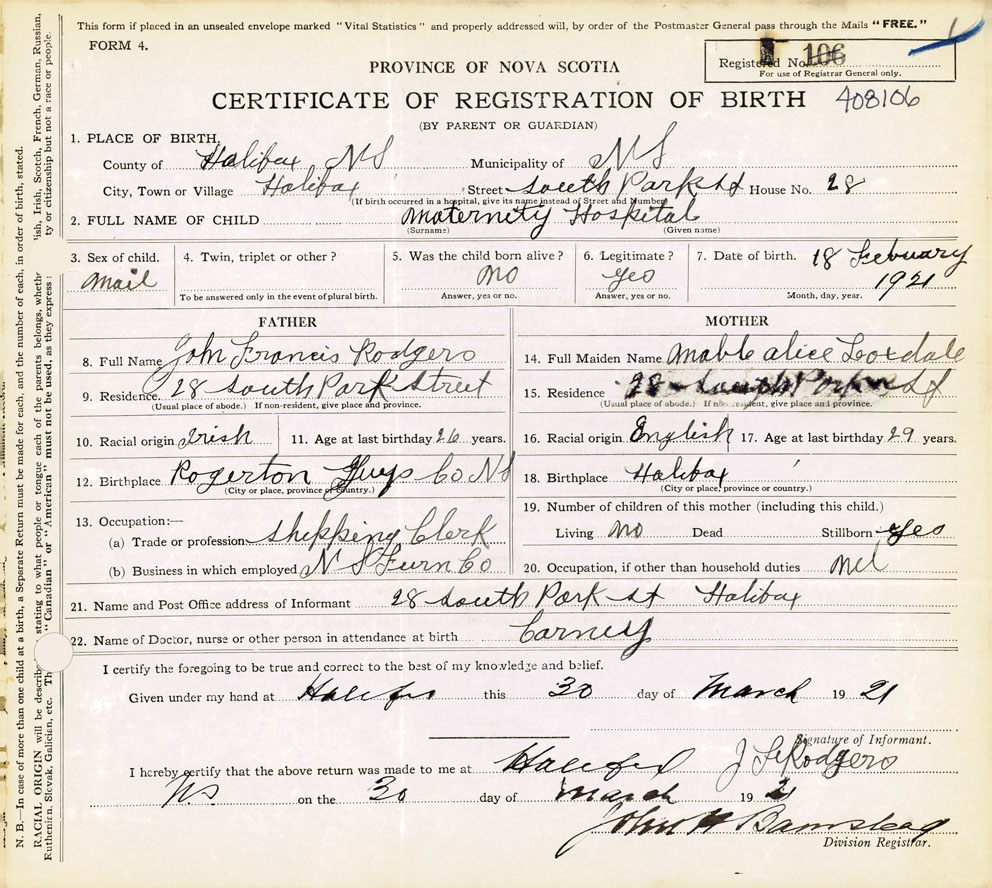 This form if placed in an unsealed envelope marked "Vital Statistics" and properly addressed will, by order of the Postmaster General pass through the Mails "FREE."
FORM 4.
Registered No. 106
For use of Registrar General only.
PROVINCE OF NOVA SCOTIA
CERTIFICATE OF REGISTRATION OF BIRTH 408106
(BY PARENT OR GUARDIAN)
1. PLACE OF BIRTH,
County of Halifax NS Municipality of NS
City, Town or Village Halifax Street South Park St House No. 28
(If birth occurred in a hospital, give its name instead of Street and Number)
2. FULL NAME OF CHILD Maternity Hospital
(Surname) (Given name)
3. Sex of child. 4. Twin, triplet or other? 5. Was the child born alive? 6. Legitimate? 7. Date of birth. 18 Febuary
mail no yes 1921
To be answered only in the event of plural birth. Answer, yes or no. Answer, yes or no. Month, day, year.
FATHER
8. Full Name John Francis Rodgers
9. Residence 28 South Park Street
(Usual place of abode.) If non-resident, give place and province.
10. Racial origin Irish 11. Age at last birthday 26 years.
12. Birthplace Rogerton Guys Co NS
(City or place, province or country.)
13. Occupation:—
(a) Trade or profession Shepping Clerk
(b) Business in which employed N S Furn Co
MOTHER
14. Full Maiden Name Mable alice Loxdale
15. Residence 28 South Park St
(Usual place of abode.) If non-resident, give place and province.
16. Racial origin English 17. Age at last birthday 29 years.
18. Birthplace Halifax
(City or place, province or country.)
19. Number of children of this mother (including this child.)
Living no Dead Stillborn yes
20. Occupation, if other than household duties
21. Name and Post Office address of Informant 28 South Park St Halifax
22. Name of Doctor, nurse or other person in attendance at birth Carney
I certify the foregoing to be true and correct to the best of my knowledge and belief.
Given under my hand at Halifax this 30 day of March 19 21
Signature of Informant.
J F Rodgers
I hereby certify that the above return was made to me at Halifax
N.S on the 30 day of March 19 21
John H Barnstead
Division Registrar.
N. B.—In case of more than one child at a birth, a Separate Return must be made for each, and the number of each, in order of birth, stated.
RACIAL ORIGIN will be describe stating to what people or tongue each of the parents belongs, wheth 'ish, Irish, Scotch, French, German, Russian,
Ruthenian, Slovak, Galician, etc. Th "Canadian" or "American" must not be used, as they express ty or citizenship but not a race or people.